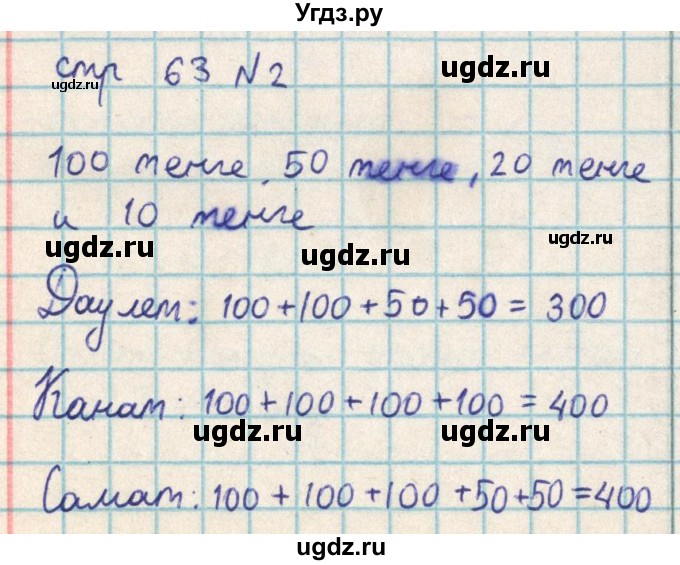 Угдз.ру
стр 63 N2
ugdz.ru ugdz.ru
100 тенге, 50 тенге, 20 тенге
и 10 тенге
ugdz.ru ugdz.ru ugdz.ru
Даулет: 100+100+50+50= 300
Канат: 100+100+100+100=400
ugdz.ru ugdz.ru
Самат: 100+100+100+50+50=400
ugdz.ru